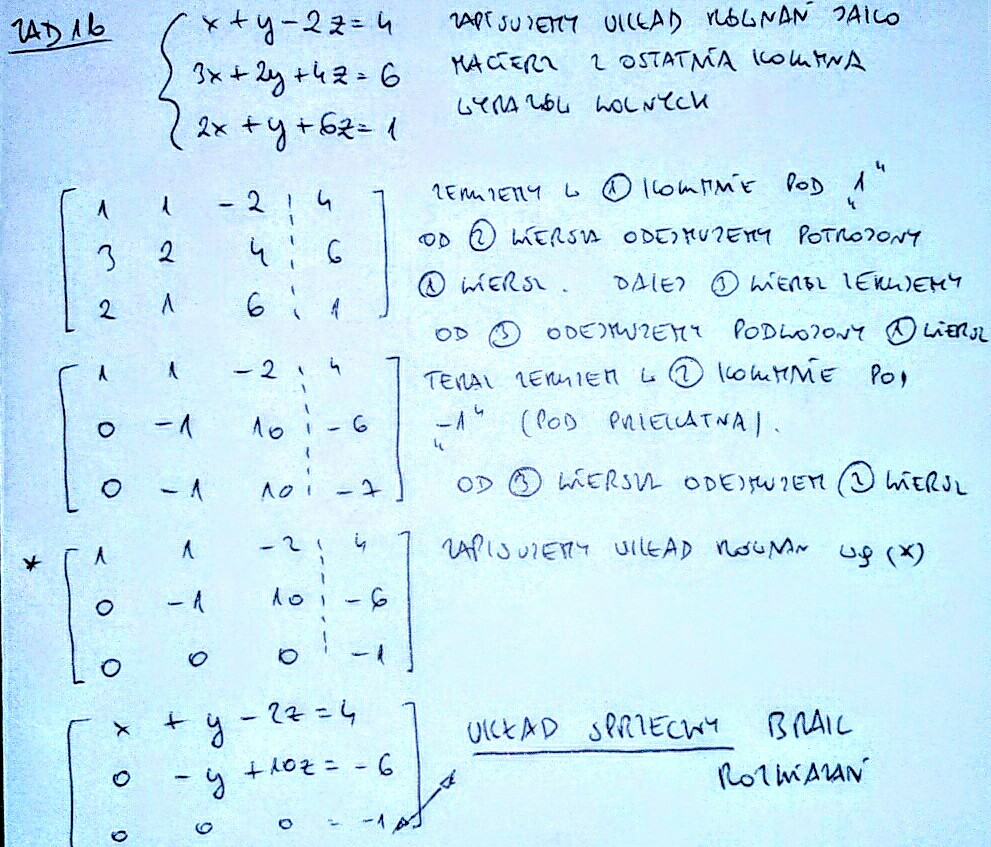 ZAD 1b
x + y - 2z = 4
3x + 2y + 4z = 6
2x + y + 6z = 1
ZAPISUJEMY UKŁAD RÓWNAŃ JAKO
MACIERZ Z OSTATNIĄ KOLUMNĄ
WYRAZÓW WOLNYCH
1 1 -2 4
3 2 4 6
2 1 6 1
ZERUJEMY W ① KOLUMNIE POD „1"
OD ② WIERSZA ODEJMUJEMY POTROJONY
① WIERSZ. DALEJ ③ WIERSZ ZERUJEMY
OD ③ ODEJMUJEMY PODWOJONY ① WIERSZ
1 1 -2 4
0 -1 10 -6
0 -1 10 -7
TERAZ ZERUJEM W ② KOLUMNIE POD
„-1" (POD PRZEKĄTNĄ).
OD ③ WIERSZA ODEJMUJEM ② WIERSZ
* 1 1 -2 4
0 -1 10 -6
0 0 0 -1
ZAPISUJEMY UKŁAD RÓWNAŃ wg (*)
x + y - 2z = 4
0 - y + 10z = -6
0 0 0 = -1
UKŁAD SPRZECZNY BRAK
ROZWIĄZAŃ